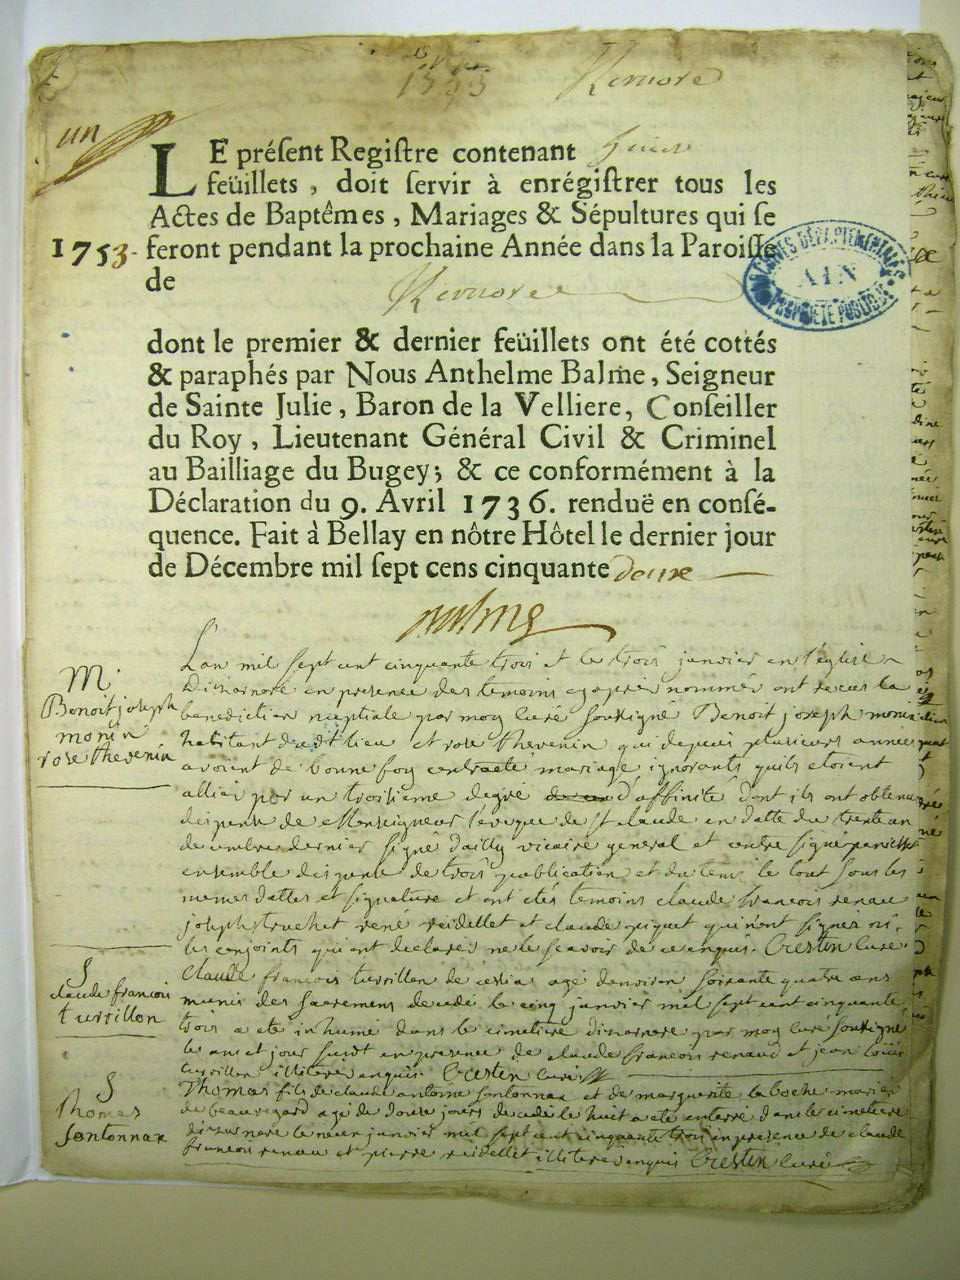 1753
un
LE préſent Regiſtre contenant
feüillets, doit ſervir à enrégiſtrer tous les
Actes de Baptêmes, Mariages & Sépultures qui ſe
1753- feront pendant la prochaine Année dans la Paroiſſe
de
ARCHIVES DÉPARTEMENTALES
AIN
PROPRIÉTÉ PUBLIQUE
dont le premier & dernier feüillets ont été cottés
& paraphés par Nous Anthelme Balme, Seigneur
de Sainte Julie, Baron de la Velliere, Conſeiller
du Roy, Lieutenant Général Civil & Criminel
au Bailliage du Bugey; & ce conformément à la
Déclaration du 9. Avril 1736. renduë en conſé-
quence. Fait à Bellay en nôtre Hôtel le dernier jour
de Décembre mil ſept cens cinquante douze
M.
Benoit joseph
monin
rose thevenin
L'an mil sept cent cinquante trois et le trois janvier en l'église
en presence des temoins cy apres nommés ont receu la
benediction nuptiale par moy curé soussigné Benoit joseph monin
habitant dudit lieu et rose thevenin qui depuis plusieurs annees
avoient de bonne foy contracté mariage ignorants quils etoient
allies par un troisieme degré d'affinité dont ils ont obtenu
dispense de Monseigneur l'eveque de st claude en datte du trente un
decembre dernier signé vicaire general et contre signé
ensemble dispense de trois publication et du tems le tout sous les
memes dattes et signature et ont etés temoins claude francois renau
joseph truchet rené reidellet et claude qui n'ont signes ni
les conjoints qui ont declarés ne le scavoir de ce enquis. Crestin curé
S
claude francois
tursillon
claude francois tursillon de agé denviron soixante quatre ans
munis des sacremens decedé le cinq janvier mil sept cent cinquante
trois a eté inhumé dans le cimetiere par moy curé soussigné
les an et jour susdt en presence de claude francois renaud et jean louis
tursillon illiteres enquis. Crestin curé
S
thomas
sontonnax
Thomas fils de claude antoine sontonnax et de marguerite la
de beauregard agé de douze jours decedé le huit a eté enterré dans le cimetiere
le neuf janvier mil sept cent cinquante trois en presence de claude
francois renau et pierre reidellet illiteres enquis Crestin curé